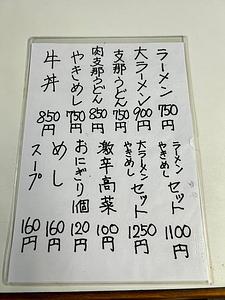 ラーメン 750円
大ラーメン 900円
支那うどん 750円
肉支那うどん 850円
やきめし 750円
牛丼 850円
ラーメン やきめし セット 1100円
大ラーメン やきめし セット 1250円
激辛高菜 100円
おにぎり1個 120円
めし 160円
スープ 160円